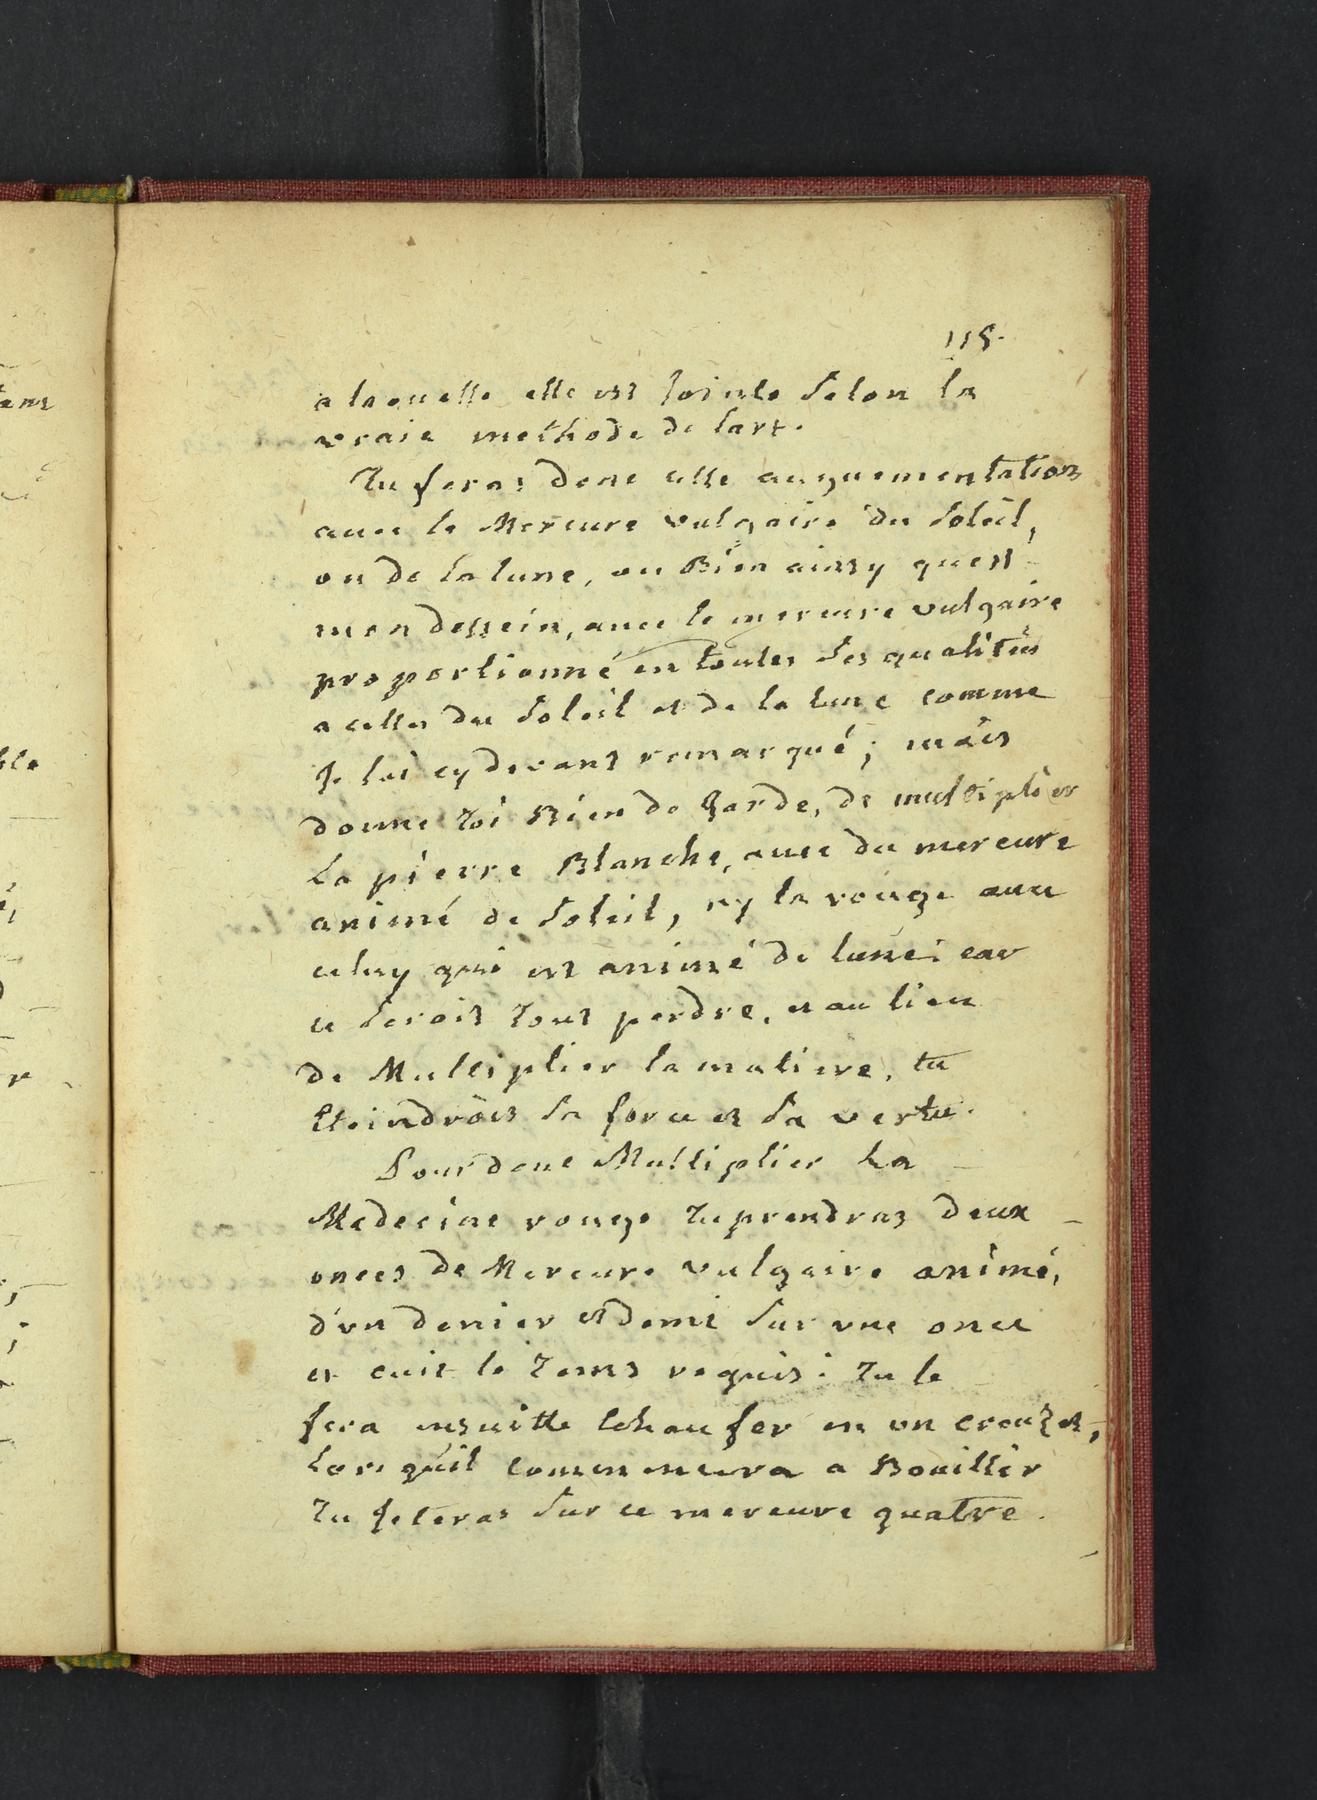 115.
a laquelle elle est jointe selon la
vraie methode de lart.
Tu feras donc cette augmentation
avec le Mercure vulgaire du soleil,
ou de la lune, ou Bien ainsy quest
mon dessein, avec le mercure vulgaire
proportionné en toutes ses qualités
a celles du soleil et de la lune comme
je lai cy devant remarqué; mais
donne toi Bien de garde, de multiplier
La pierre Blanche, avec du mercure
animé de soleil, ny la rouge avec
celuy qui est animé de lune: car
ce serois tout perdre, et au lieu
de Multiplier la matiere, tu
Eteindrois sa force et sa vertu.
Pour donc Multiplier La
Medecine rouge tu prendras deux
onces de Mercure vulgaire animé,
d'un denier et demi sur une once
et cuit le tems requis: tu le
fera ensuitte Echaufer en un creuzet,
Lors qu'il commencera a Bouillir
tu jeteras sur ce mercure quatre